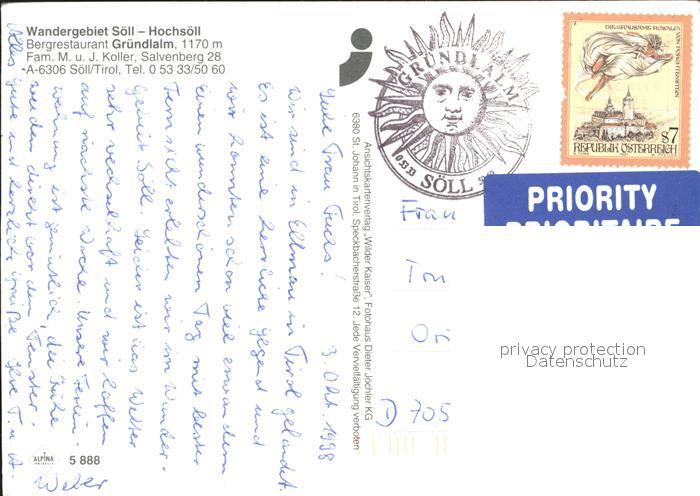 Wandergebiet Söll – Hochsöll
Bergrestaurant Gründlalm, 1170 m
Fam. M. u. J. Koller, Salvenberg 28
A-6306 Söll/Tirol, Tel. 0 53 33/50 60
GRÜNDLALM
05333
SÖLL
DIE GRAUSAME ROSALIA VON FORCHTENSTEIN
S7
REPUBLIK ÖSTERREICH
PRIORITY
PRIORITAIRE
Ansichtskartenverlag „Wilder Kaiser", Fotohaus Dieter Jöchler KG
6380 St. Johann in Tirol, Speckbacherstraße 12. Jede Vervielfältigung verboten
3. Okt. 1998
Liebe Frau
Wir sind in Ellmau in Tirol gelandet.
Es ist eine herrliche Gegend und
wir konnten schon viel erwandern
Einen wunderschönen Tag mit bester
Fernsicht erlebten wir im Wander-
Gebiet Söll. Leider ist das Wetter
sehr wechselhaft und wir hoffen
auf nächste Woche. Unsere Ferien-
wohnung ist gemütlich, die Kühe
weiden direkt vor dem Fenster.
Alles gute und herzliche Grüße Ihre T. u. A.
Weber
Frau
D 705
privacy protection
Datenschutz
ALPINA
5 888